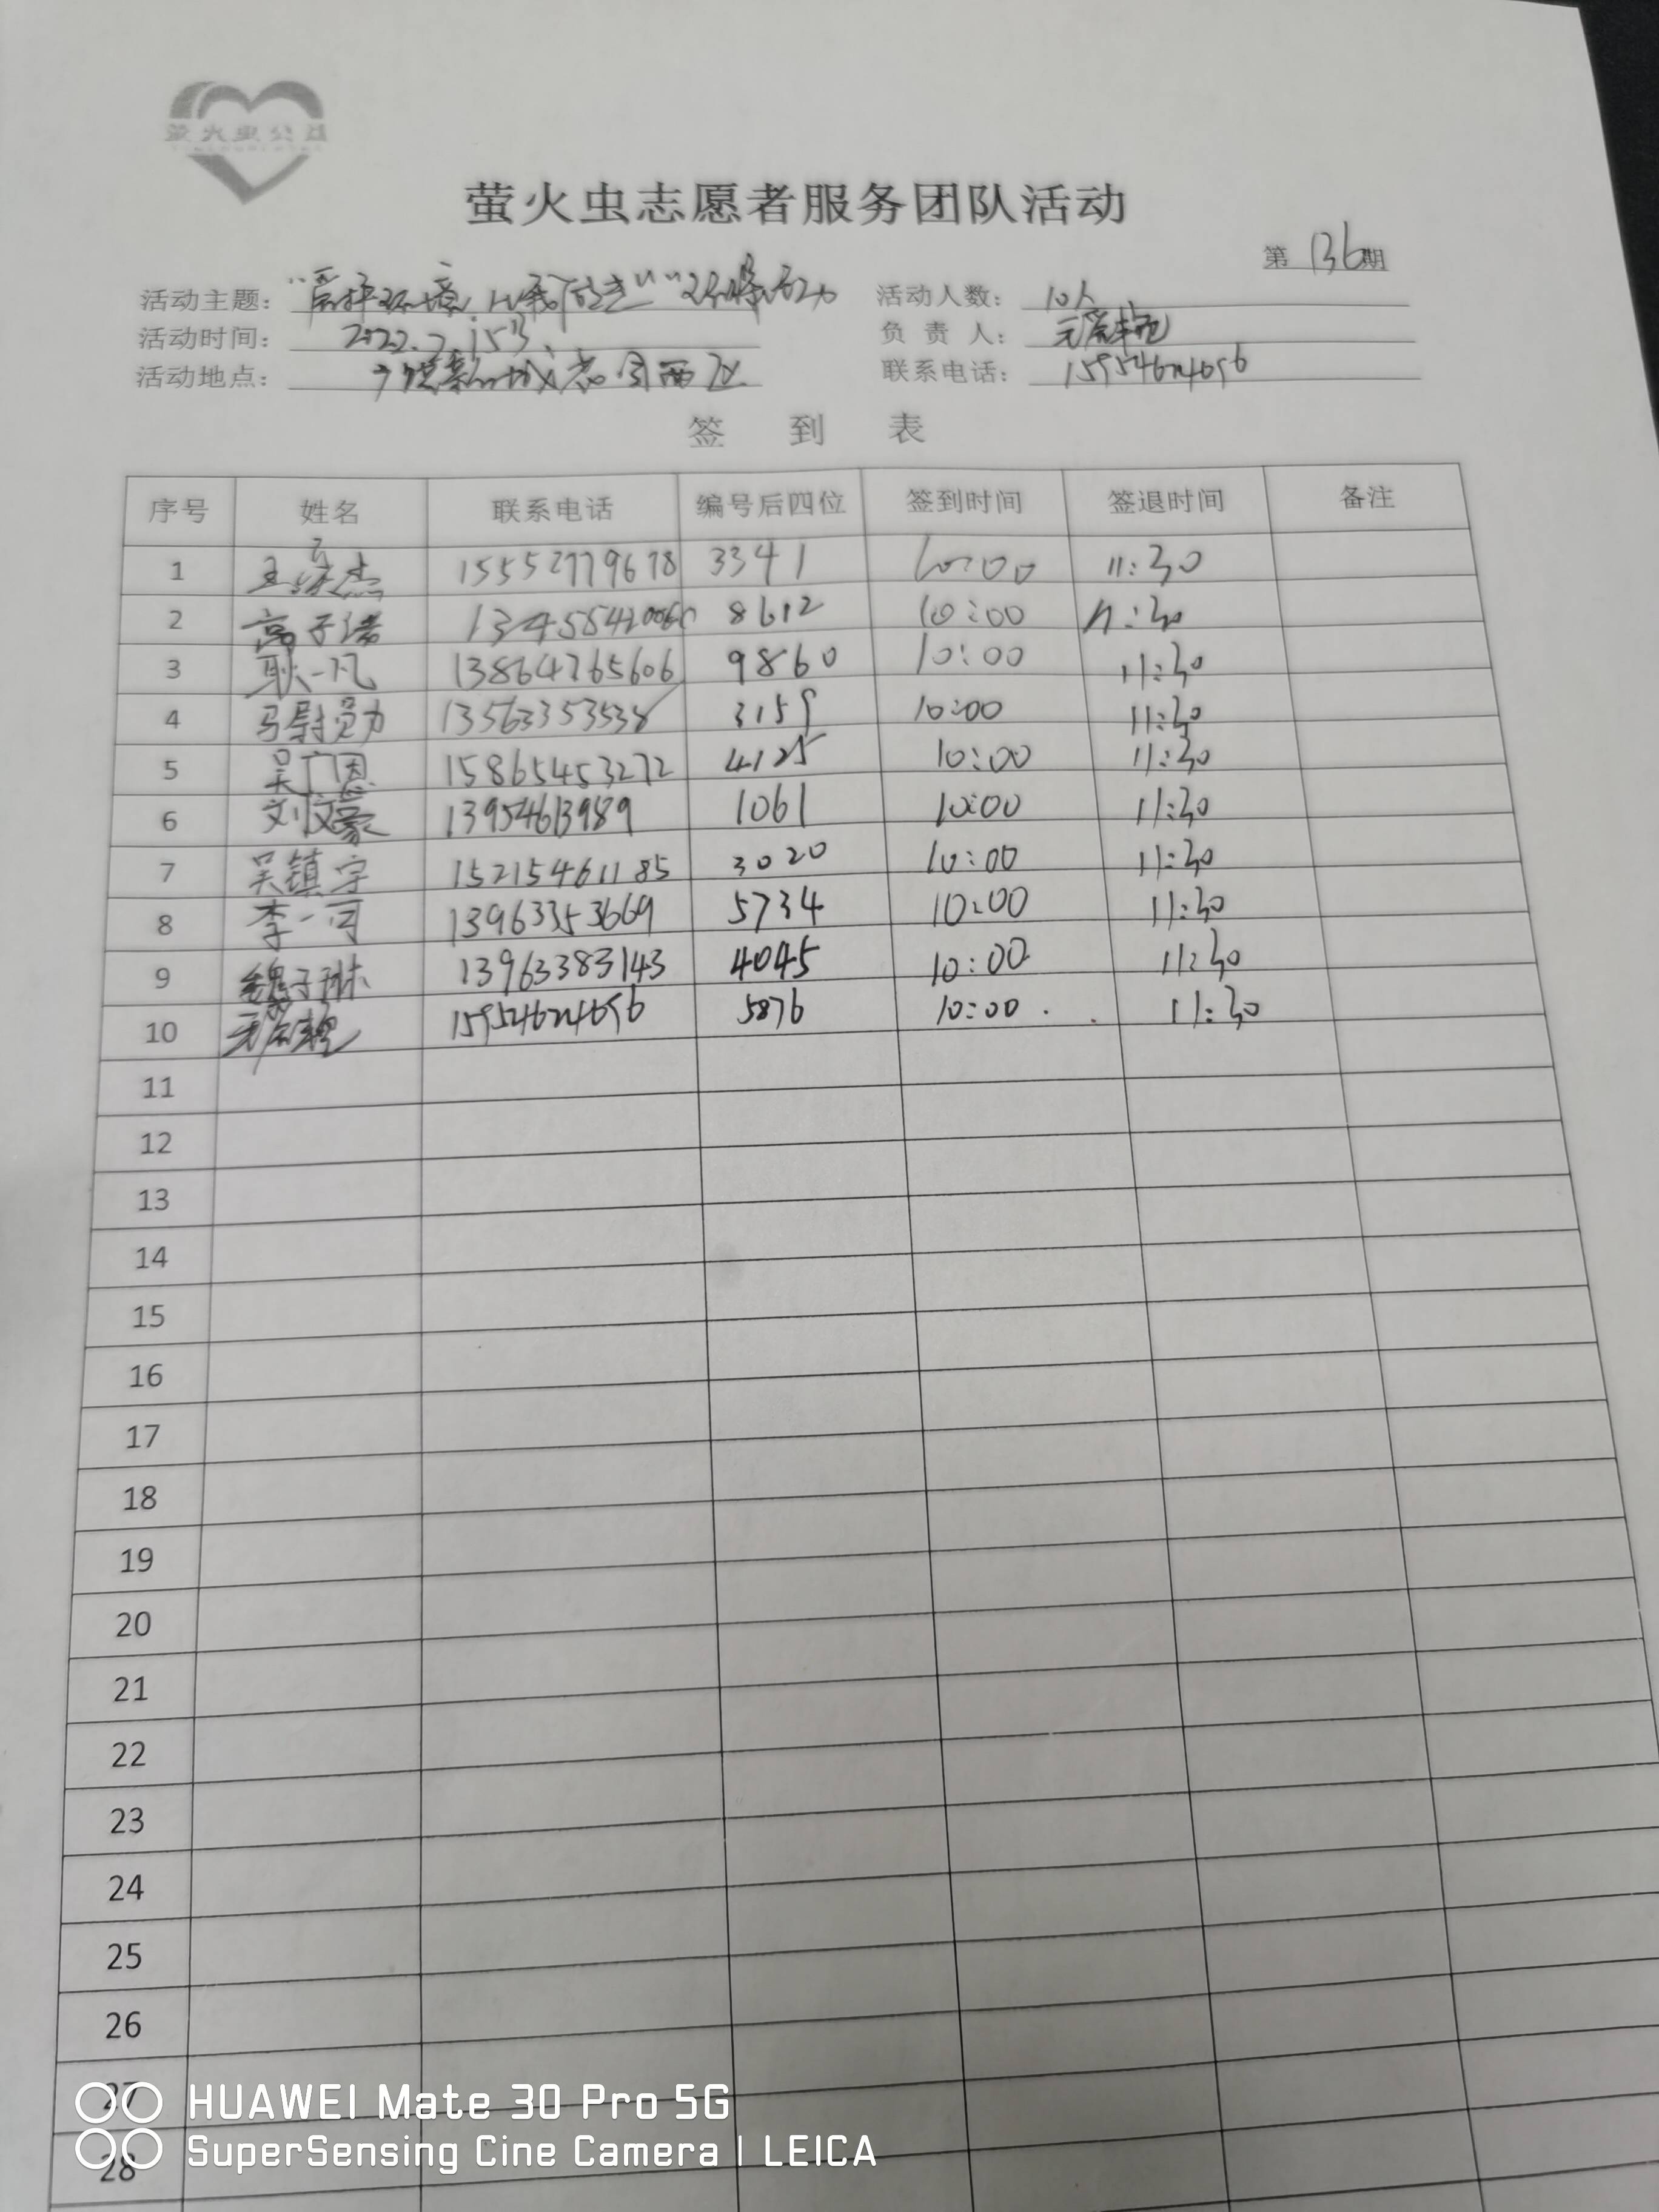 萤火虫公益
萤火虫志愿者服务团队活动
第136期
活动主题：“爱护环境，从我做起”
活动人数：10人
活动时间：2022.7.15日.
负 责 人：
活动地点：
联系电话：15954624696
签 到 表
序号 姓名 联系电话 编号后四位 签到时间 签退时间 备注
1 15552779678 3341 10:00 11:30
2 高子诺 8612 10:00 11:30
3 耿一凡 13864765606 9860 10:00 11:30
4 13563353538 3159 10:00 11:30
5 吴广恩 15865453272 4125 10:00 11:30
6 刘文豪 13954613989 1061 10:00 11:30
7 吴镇宇 15215461185 3020 10:00 11:30
8 李一可 13963353669 5734 10:00 11:30
9 魏子琳 13963383143 4045 10:00 11:30
10 15954624696 5876 10:00 11:30
11
12
13
14
15
16
17
18
19
20
21
22
23
24
25
26
27
28
HUAWEI Mate 30 Pro 5G
SuperSensing Cine Camera | LEICA